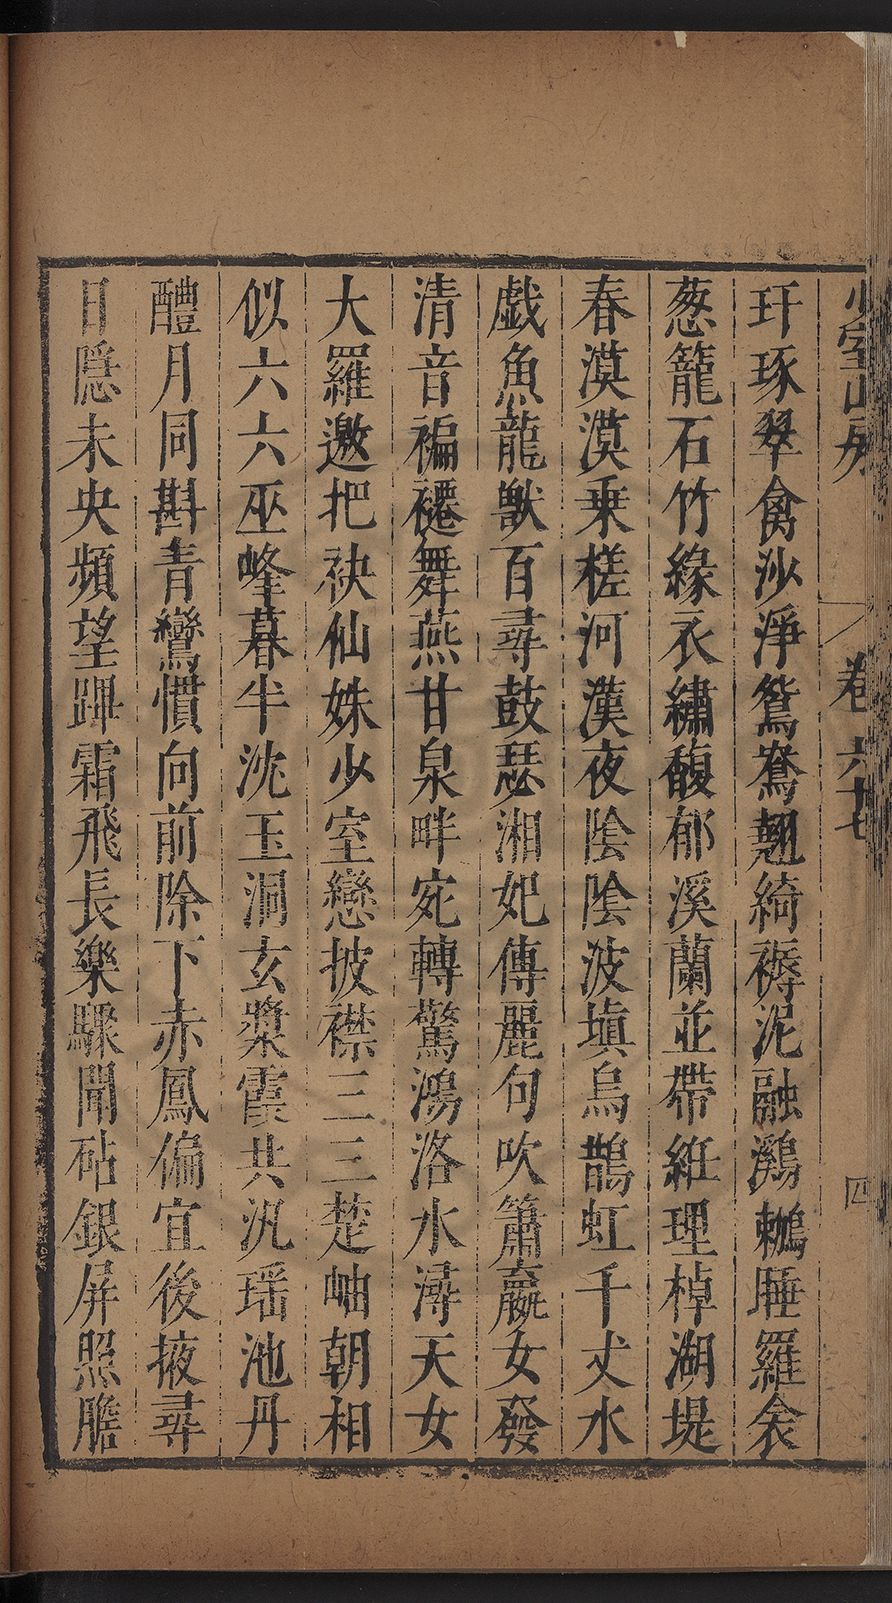 少室山房
卷六十七
四
玕琢翠禽沙淨鴛鴦翹綺褥泥融鸂鶒睡羅衾
葱籠石竹緣衣繡馥郁溪蘭並帶紝理棹湖堤
春漠漠乗槎河漢夜陰陰波塡烏鵲虹千丈水
戯魚龍獸百尋鼓瑟湘妃傳麗句吹簫嬴女發
清音褊襹舞燕甘泉畔宛轉驚鴻洛水潯天女
大羅邀把袂仙姝少室戀披襟三三楚岫朝相
似六六巫峰暮半沈玉洞玄漿霞共汎瑶池丹
醴月同斟青鸞慣向前除下赤鳳偏宜後掖尋
日隱未央頻望蹕霜飛長樂驟聞砧銀屏照膽